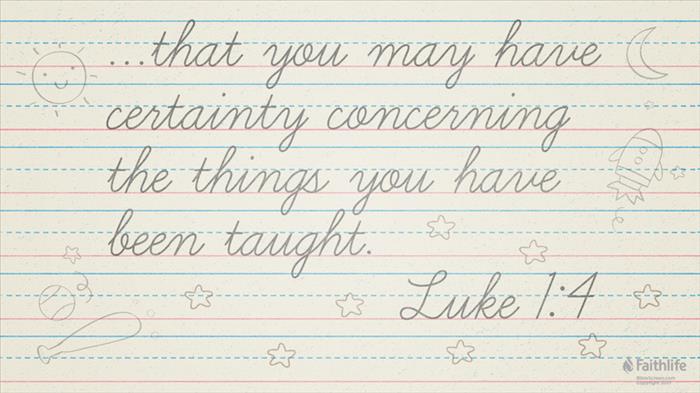 ...that you may have
certainty concerning
the things you have
been taught.
Luke 1:4
Faithlife